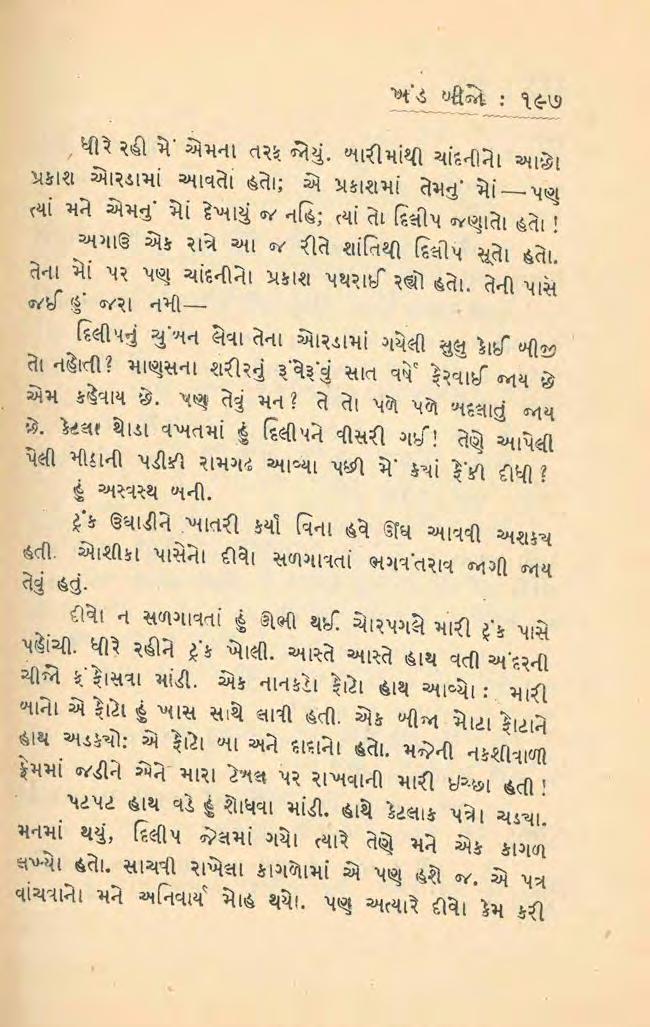 ખંડ બીજો : ૧૯૭
ધીરે રહી મેં એમના તરફ જોયું. બારીમાંથી ચાંદનીનો આછો
પ્રકાશ ઓરડામાં આવતો હતો; એ પ્રકાશમાં તેમનું મોં — પણ
ત્યાં મને એમનું મોં દેખાયું જ નહિ; ત્યાં તો દિલીપ જણાતો હતો !
અગાઉ એક રાત્રે આ જ રીતે શાંતિથી દિલીપ સૂતો હતો.
તેના મોં પર પણ ચાંદનીનો પ્રકાશ પથરાઈ રહ્યો હતો. તેની પાસે
જઈ હું જરા નમી—
દિલીપનું ચુંબન લેવા તેના ઓરડામાં ગયેલી સુલુ કોઈ બીજી
તો નહોતી ? માણસના શરીરનું રૂંવેરૂંવું સાત વર્ષે ફેરવાઈ જાય છે
એમ કહેવાય છે. પણ તેવું મન ? તે તો પળે પળે બદલાતું જાય
છે. કેટલા થોડા વખતમાં હું દિલીપને વીસરી ગઈ! તેણે આપેલી
પેલી મીઠાની પડીકી રામગઢ આવ્યા પછી મેં ક્યાં ફેંકી દીધી ?
હું અસ્વસ્થ બની.
ટ્રંક ઉઘાડીને ખાતરી કર્યા વિના હવે ઊંઘ આવવી અશક્ય
હતી. ઓશીકા પાસેનો દીવો સળગાવતાં ભગવંતરાવ જાગી જાય
તેવું હતું.
દીવો ન સળગાવતાં હું ઊભી થઈ. ચોરપગલે મારી ટ્રંક પાસે
પહોંચી. ધીરે રહીને ટ્રંક ખોલી. આસ્તે આસ્તે હાથ વતી અંદરની
ચીજો ફંફોસવા માંડી. એક નાનકડો ફોટો હાથ આવ્યો : મારી
બાનો એ ફોટો હું ખાસ સાથે લાવી હતી. એક બીજા મોટા ફોટાને
હાથ અડક્યો: એ ફોટો બા અને દાદાનો હતો. મજેની નકશીવાળી
ફ્રેમમાં જડીને એને મારા ટેબલ પર રાખવાની મારી ઇચ્છા હતી !
પટપટ હાથ વડે હું શોધવા માંડી. હાથે કેટલાક પત્રો ચડ્યા.
મનમાં થયું, દિલીપ જેલમાં ગયો ત્યારે તેણે મને એક કાગળ
લખ્યો હતો. સાચવી રાખેલા કાગળોમાં એ પણ હશે જ. એ પત્ર
વાંચવાનો મને અનિવાર્ય મોહ થયો. પણ અત્યારે દીવો કેમ કરી